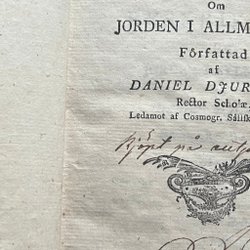 Om
JORDEN I ALLM
Författad
af
DANIEL DJUR
Rector Scholæ.
Ledamot af Cosmogr. Sällsk
Köpt på auk